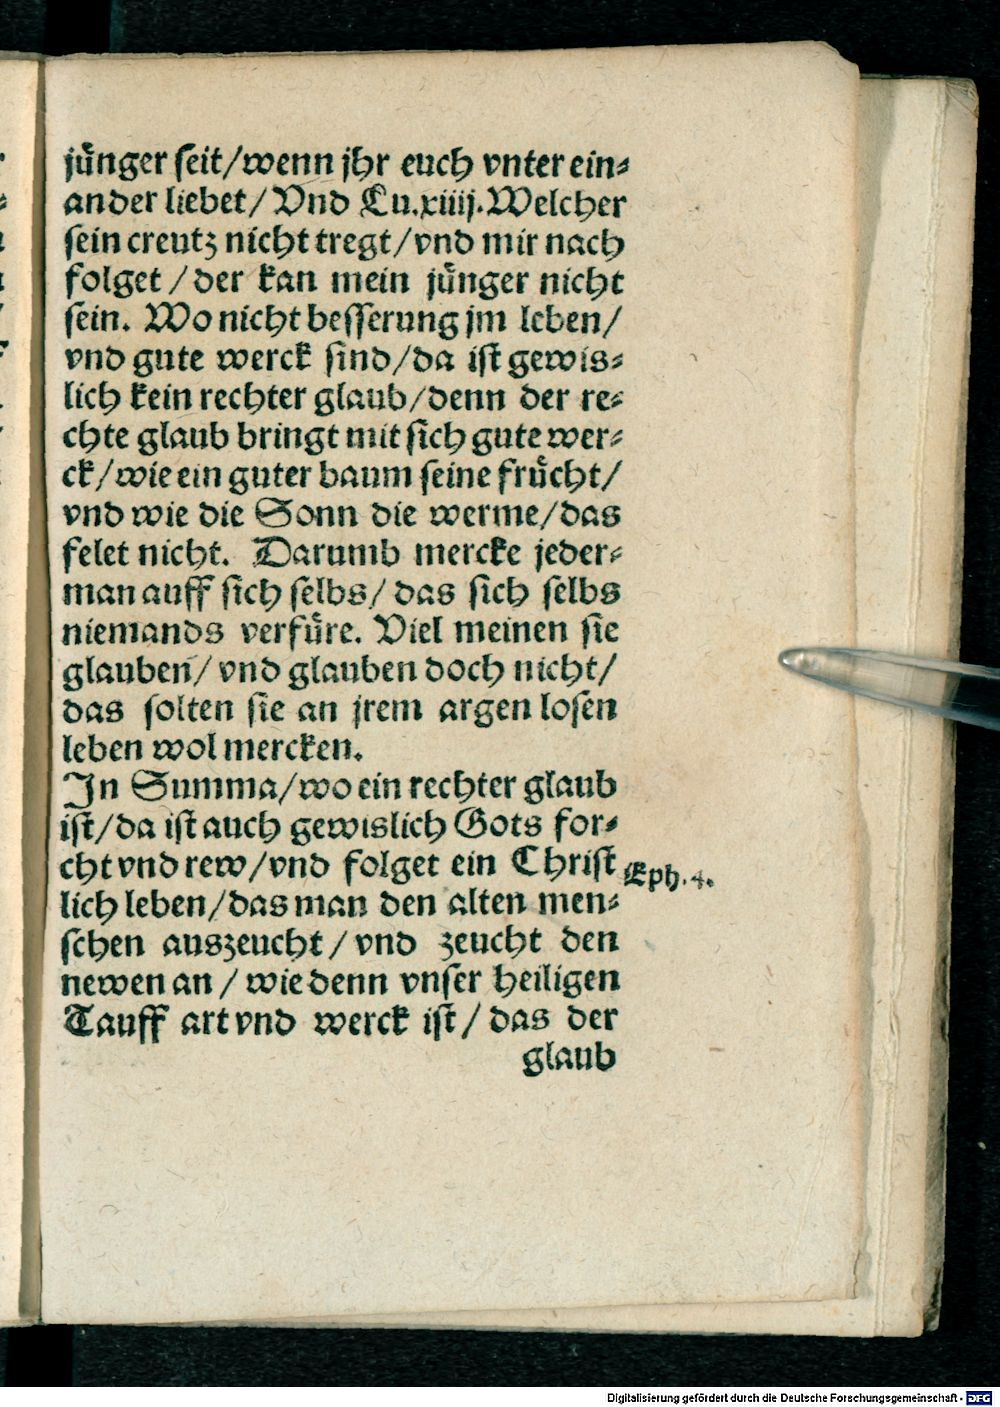 jůnger ſeit/wenn jhr euch vnter ein⸗
ander liebet/ Vnd Lu.xiiij. Welcher
ſein creutz nicht tregt/vnd mir nach
folget /der kan mein jůnger nicht
ſein. Wo nicht beſſerung jm leben/
vnd gute werck ſind/da iſt gewis⸗
lich kein rechter glaub/denn der re⸗
chte glaub bringt mit ſich gute wer⸗
ck/wie ein guter baum ſeine frůcht/
vnd wie die Sonn die werme/das
felet nicht. Darumb mercke jeder⸗
man auff ſich ſelbs/ das ſich ſelbs
niemands verfůre. Viel meinen ſie
glauben/ vnd glauben doch nicht/
das ſolten ſie an jrem argen loſen
leben wol mercken.
In Summa/wo ein rechter glaub
iſt/da iſt auch gewislich Gots for⸗
cht vnd rew/vnd folget ein Chriſt
Eph. 4.
lich leben/das man den alten men⸗
ſchen auszeucht / vnd zeucht den
newen an / wie denn vnſer heiligen
Tauff art vnd werck iſt/ das der
glaub
Digitalisierung gefördert durch die Deutsche Forschungsgemeinschaft - DFG